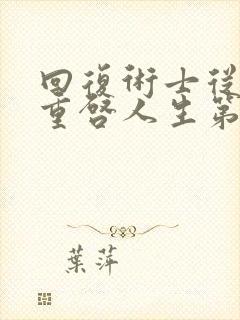 回復術士從
重啓人生第
葉萍